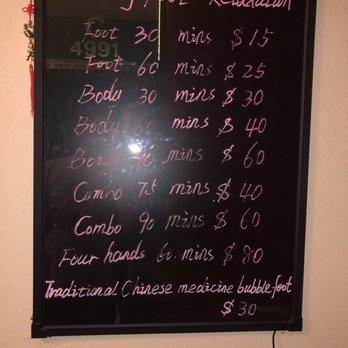 Relaxation
4991
Foot 30 mins $15
Foot 60 mins $25
Body 30 mins $30
Body 60 mins $40
Body 90 mins $60
Combo 75 mins $40
Combo 90 mins $60
Four hands 60. mins $80
Traditional Chinese medicine bubble foot
$30